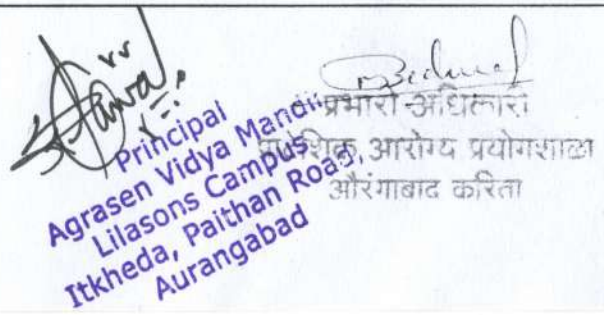 Principal
Agrasen Vidya Mandir
Lilasons Campus
Itkheda, Paithan Road,
Aurangabad
प्रभारी अधिकारी
प्रादेशिक आरोग्य प्रयोगशाळा
औरंगाबाद करिता